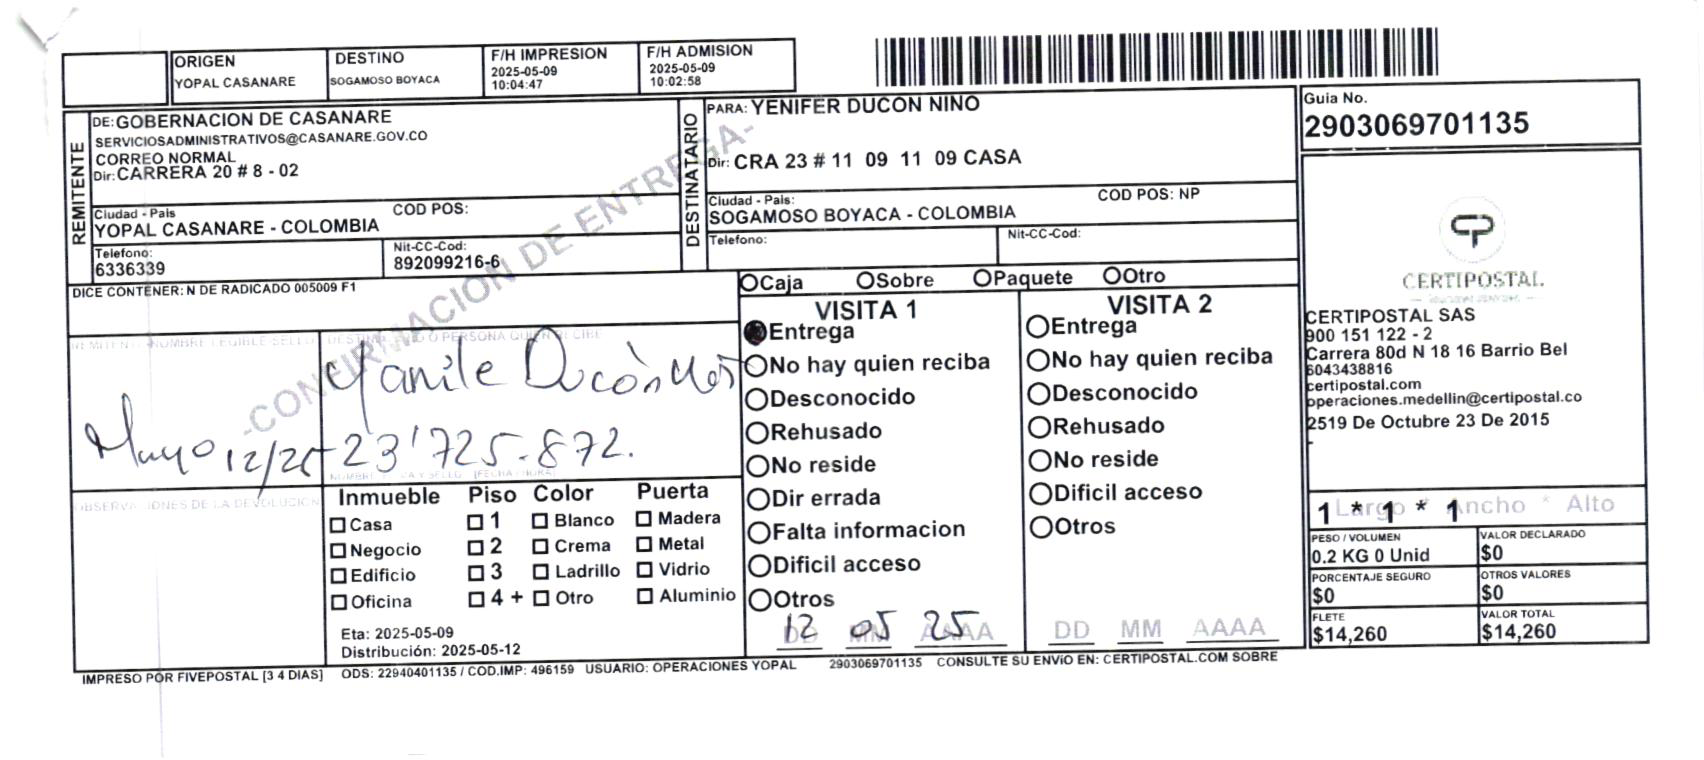 ORIGEN
YOPAL CASANARE
DESTINO
SOGAMOSO BOYACA
F/H IMPRESION
2025-05-09
10:04:47
F/H ADMISION
2025-05-09
10:02:58
REMITENTE
DE: GOBERNACION DE CASANARE
SERVICIOSADMINISTRATIVOS@CASANARE.GOV.CO
CORREO NORMAL
Dir: CARRERA 20 # 8 - 02
Ciudad - Pais
COD POS:
YOPAL CASANARE - COLOMBIA
Telefono:
6336339
Nit-CC-Cod:
892099216-6
DESTINATARIO
PARA: YENIFER DUCON NINO
Dir: CRA 23 # 11 09 11 09 CASA
Ciudad - Pais:
COD POS: NP
SOGAMOSO BOYACA - COLOMBIA
Telefono:
Nit-CC-Cod:
Guia No.
2903069701135
-CONFIRMACION DE ENTREGA-
DICE CONTENER: N DE RADICADO 005009 F1
Yanile Ducòn
Mayo 12/25
23'725.872.
OBSERVACIONES DE LA DEVOLUCION
Inmueble Piso Color Puerta
Casa 1 Blanco Madera
Negocio 2 Crema Metal
Edificio 3 Ladrillo Vidrio
Oficina 4 + Otro Aluminio
Eta: 2025-05-09
Distribución: 2025-05-12
Caja Sobre Paquete Otro
VISITA 1
Entrega
No hay quien reciba
Desconocido
Rehusado
No reside
Dir errada
Falta informacion
Dificil acceso
Otros
12 05 25
DD MM AAAA
VISITA 2
Entrega
No hay quien reciba
Desconocido
Rehusado
No reside
Dificil acceso
Otros
DD MM AAAA
CERTIPOSTAL
CERTIPOSTAL SAS
900 151 122 - 2
Carrera 80d N 18 16 Barrio Bel
6043438816
certipostal.com
operaciones.medellin@certipostal.co
2519 De Octubre 23 De 2015
-
1 * 1 * 1
Largo * Ancho * Alto
PESO / VOLUMEN
0.2 KG 0 Unid
VALOR DECLARADO
$0
PORCENTAJE SEGURO
$0
OTROS VALORES
$0
FLETE
$14,260
VALOR TOTAL
$14,260
IMPRESO POR FIVEPOSTAL [3 4 DIAS] ODS: 22940401135 / COD.IMP: 496159 USUARIO: OPERACIONES YOPAL 2903069701135 CONSULTE SU ENVíO EN: CERTIPOSTAL.COM SOBRE